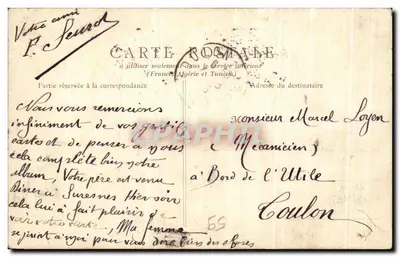 Votre ami
F. Seurot
CARTE POSTALE
à utiliser seulement dans le service intérieur
(France, Algérie et Tunisie)
Partie réservée à la correspondance
Adresse du destinataire
Nous vous remercions
infiniment de vos
cartes et de penser à nous
cela complète bien notre
album, Votre père est venu
Diner à Suresnes Hier soir
cela lui à fait plaisir de
voir votre carte, Ma femme
se joint à moi pour vous dire bien des choses
Monsieur Marcel Loyen
(Mécanicien)
à Bord de l'Utile
Toulon
55